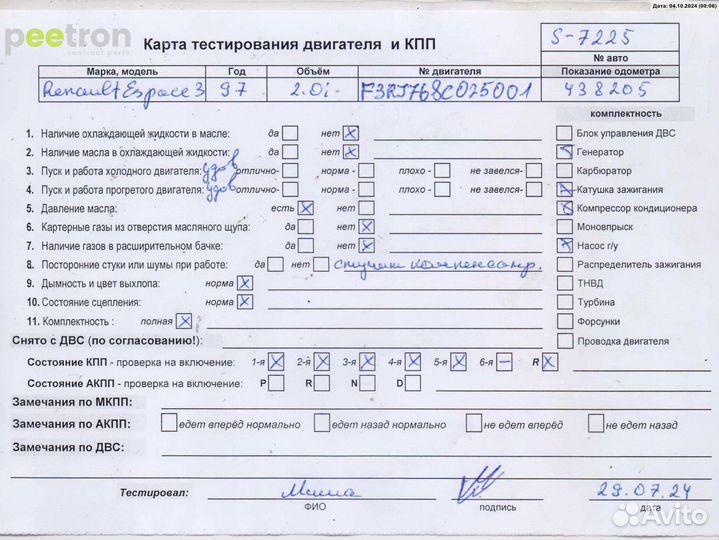 Дата: 04.10.2024 (00:06)
peetron
contract parts
Карта тестирования двигателя и КПП
S-7225
№ авто
Марка, модель Год Объём № двигателя Показание одометра
Renault Espace 3 97 2.0i F3RJ768C025001 438205
комплектность
1. Наличие охлаждающей жидкости в масле: да нет X Блок управления ДВС
2. Наличие масла в охлаждающей жидкости: да нет X Генератор
3. Пуск и работа холодного двигателя: удов отлично- норма - плохо - не завелся- Карбюратор
4. Пуск и работа прогретого двигателя: удов отлично- норма - плохо - не завелся- X Катушка зажигания
5. Давление масла: есть X нет X Компрессор кондиционера
6. Картерные газы из отверстия масляного щупа: да нет X Моновпрыск
7. Наличие газов в расширительном бачке: да нет X X Насос г/у
8. Посторонние стуки или шумы при работе: да нет Распределитель зажигания
9. Дымность и цвет выхлопа: норма X ТНВД
10. Состояние сцепления: норма X Турбина
11. Комплектность : полная X Форсунки
Снято с ДВС (по согласованию!): Проводка двигателя
Состояние КПП - проверка на включение: 1-я X 2-я X 3-я X 4-я X 5-я X 6-я — R X
Состояние АКПП - проверка на включение: P R N D
Замечания по МКПП:
Замечания по АКПП: едет вперёд нормально едет назад нормально не едет вперёд не едет назад
Замечания по ДВС:
Тестировал: Миша 29.07.24
ФИО подпись дата
Avito